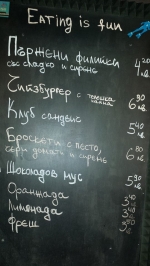 Eating is fun
Пържени филийки
със сладко и сирене 4 20 лв.
Чийзбургер с телешка
салата 6 90 лв.
Клуб сандвич 5 40 лв.
Брускети с песто,
сери домати и сирене 6 80 лв.
Шоколадов мус 5 90 лв.
Оранжада
Лимонада
Фреш